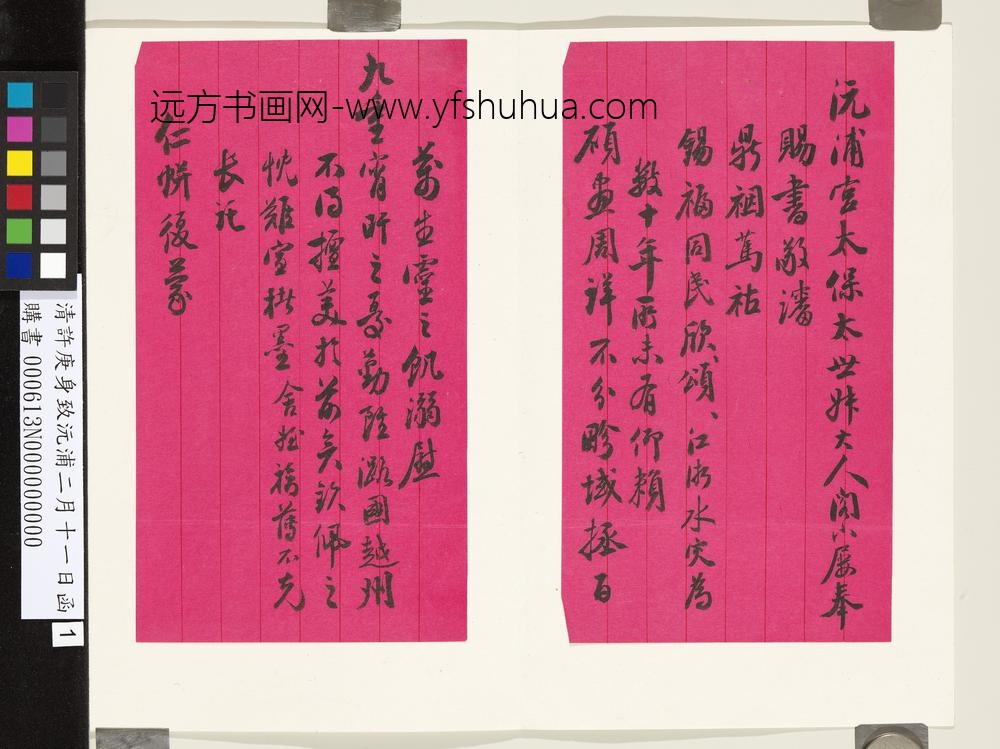 远方书画网-www.yfshuhua.com
沅浦宫太保太世叔大人阁下屡奉
賜書敬讅
鼎祺篤祜
錫福同民欣頌、江浙水灾為
數十年所未有仰賴
碩畫周詳不分畛域拯百
萬生靈之飢溺慰
九重宵旰之憂勤雖潞國越州
不得擅美於前矣欽佩之
忱難宣楮墨舍姪
薄不克
長託
仁幈後蒙
清許庚身致沅浦二月十一日函
購書 000613N000000000
1